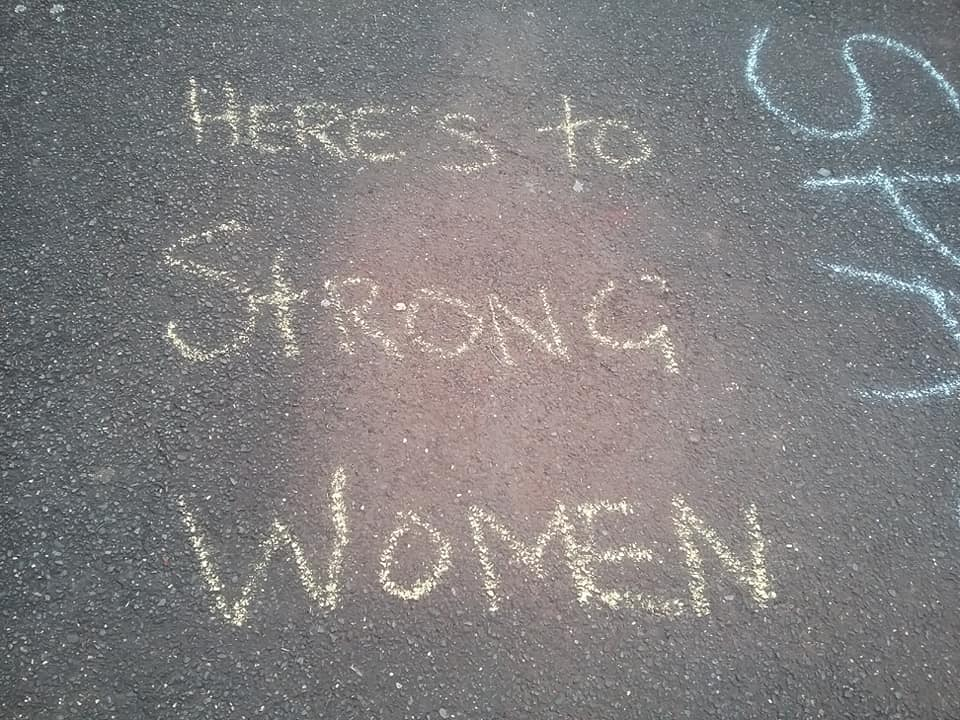 HERE'S to
STRONG
WOMEN